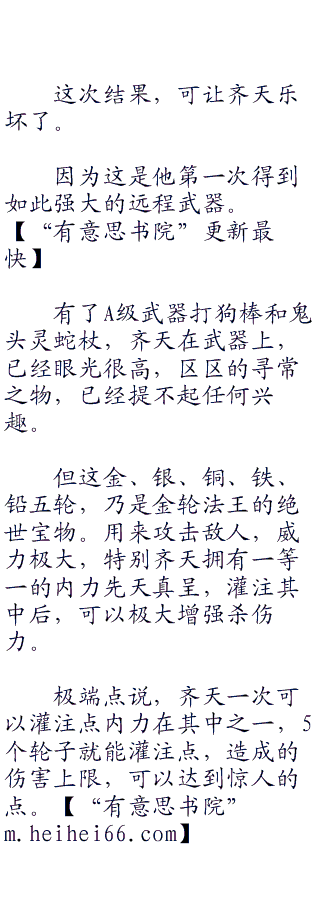 这次结果，可让齐天乐
坏了。
因为这是他第一次得到
如此强大的远程武器。
【“有意思书院”更新最
快】
有了A级武器打狗棒和鬼
头灵蛇杖，齐天在武器上，
已经眼光很高，区区的寻常
之物，已经提不起任何兴
趣。
但这金、银、铜、铁、
铅五轮，乃是金轮法王的绝
世宝物。用来攻击敌人，威
力极大，特别齐天拥有一等
一的内力先天真呈，灌注其
中后，可以极大增强杀伤
力。
极端点说，齐天一次可
以灌注点内力在其中之一，5
个轮子就能灌注点，造成的
伤害上限，可以达到惊人的
点。【“有意思书院”
m.heihei66.com】